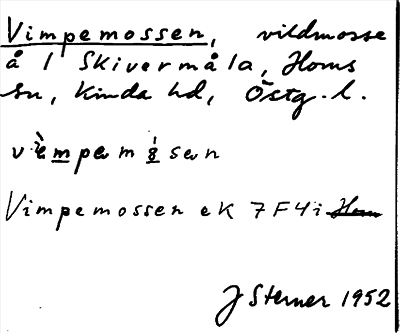 Vimpemossen, vildmosse
å 1 Skivermåla, Horns
sn, Kinda hd, Östg. l.
Vimpemossen ek 7F4i
J Sterner 1952